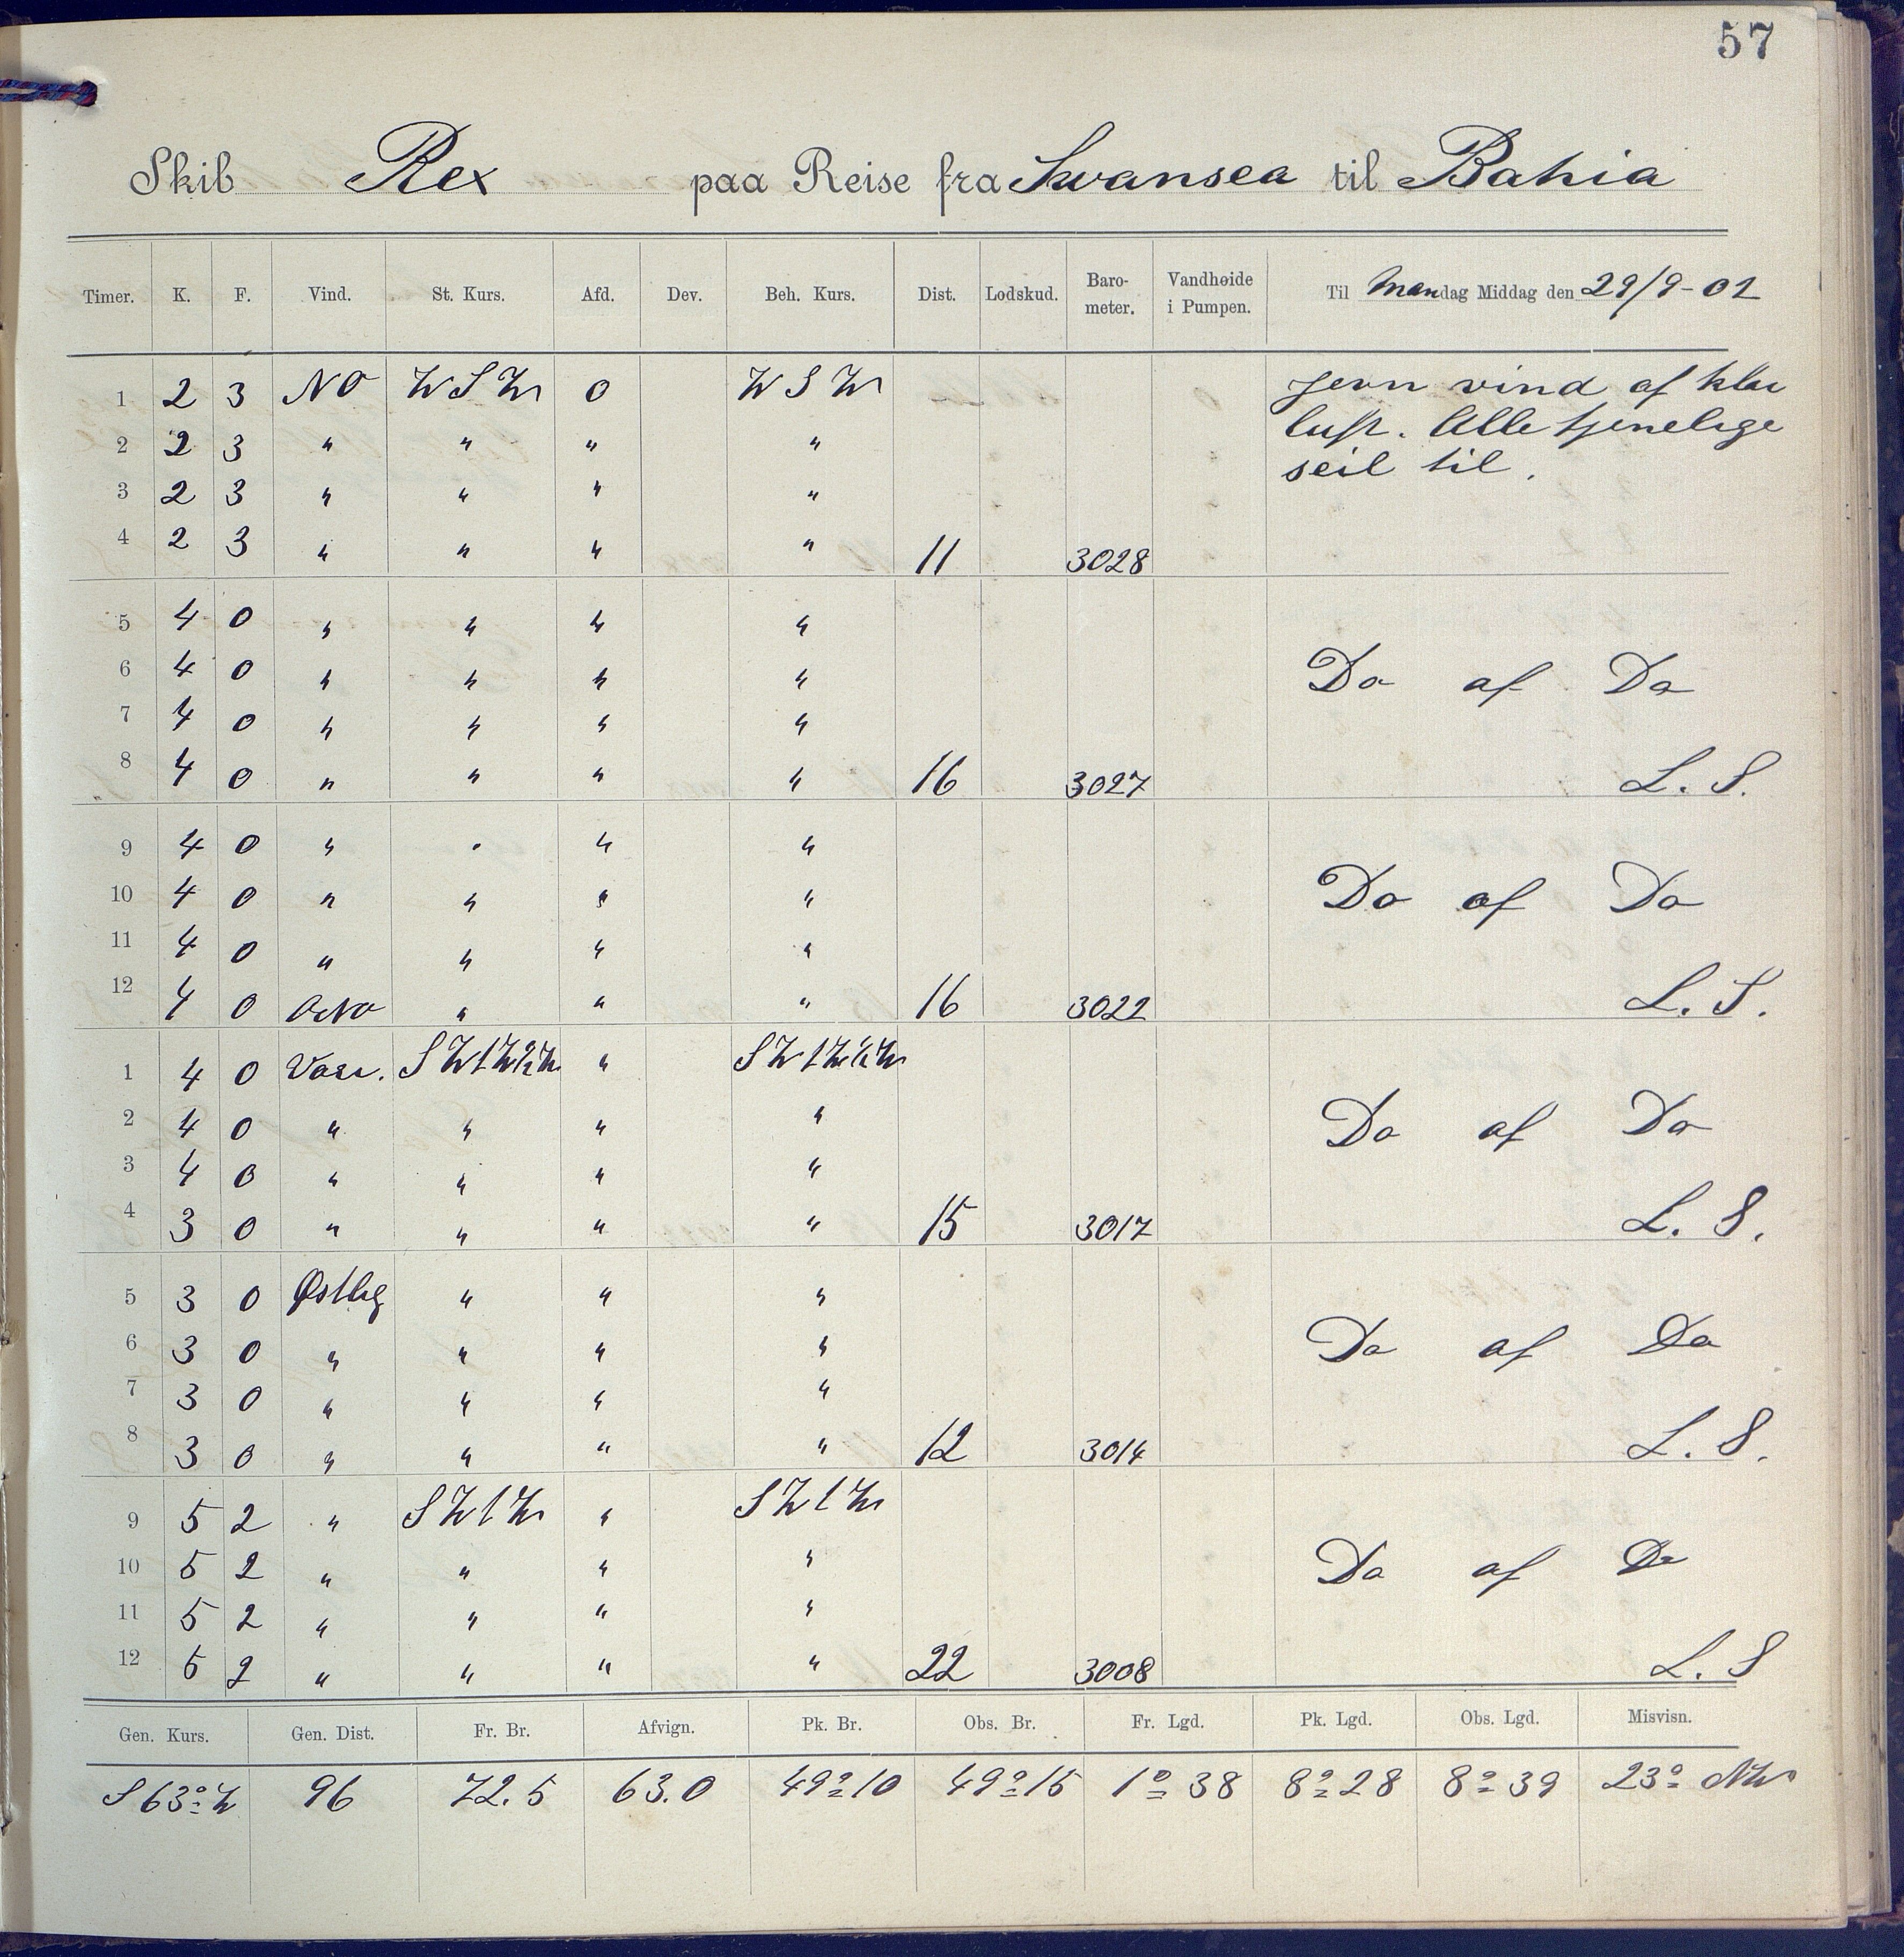 57
Skib Rex paa Reise fra Swansea til Bahia
Timer. K. F. Vind. St. Kurs. Afd. Dev. Beh. Kurs. Dist. Lodskud. Baro-meter. Vandhøide i Pumpen. Til Mandag Middag den 29/9-02
1 2 3 NO WSW 0 WSW Jevn vind af klar
2 2 3 " " " " luft. Alle tjenelige
3 2 3 " " " " seil til.
4 2 3 " " " " 11 3028
5 4 0 " " " "
6 4 0 " " " " Do af Do
7 4 0 " " " "
8 4 0 " " " " 16 3027 L. S.
9 4 0 " " " "
10 4 0 " " " " Do af Do
11 4 0 " " " "
12 4 0 ONO " " " 16 3022 L. S.
1 4 0 Vari. SWtW½W " SWtW½W
2 4 0 " " " " Do af Do
3 4 0 " " " "
4 3 0 " " " " 15 3017 L. S.
5 3 0 Østlig " " "
6 3 0 " " " " Do af Do
7 3 0 " " " "
8 3 0 " " " " 12 3014 L. S.
9 5 2 " SWtW " SWtW
10 5 2 " " " " Do af Do
11 5 2 " " " "
12 5 2 " " " " 22 3008 L. S
Gen. Kurs. Gen. Dist. Fr. Br. Afvign. Pk. Br. Obs. Br. Fr. Lgd. Pk. Lgd. Obs. Lgd. Misvisn.
S 63° W 96 72.5 63.0 49° 10 49° 15 1° 38 8° 28 8° 39 23° NW